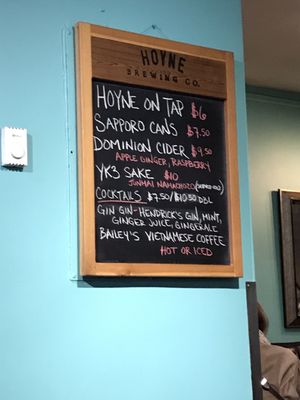 HOYNE
BREWING CO.
HOYNE ON TAP $6
SAPPORO CANS $7.50
DOMINION CIDER $9.50
APPLE GINGER, RASPBERRY
YK3 SAKE $10
JUNMAI NAMACHOZO
COCKTAILS $7.50/$10.50 DBL
GIN GIN - HENDRICK'S GIN, MINT,
GINGER JUICE, GINGERALE
BAILEY'S VIETNAMESE COFFEE
HOT OR ICED